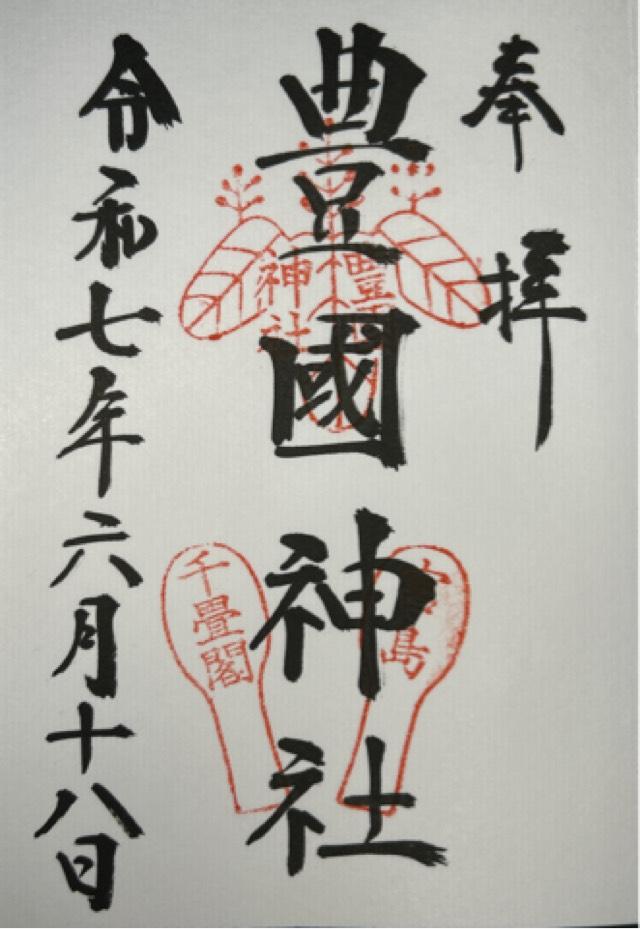 奉拝
豊國神社
令和七年六月十八日
豊
神社
宮島
千畳閣